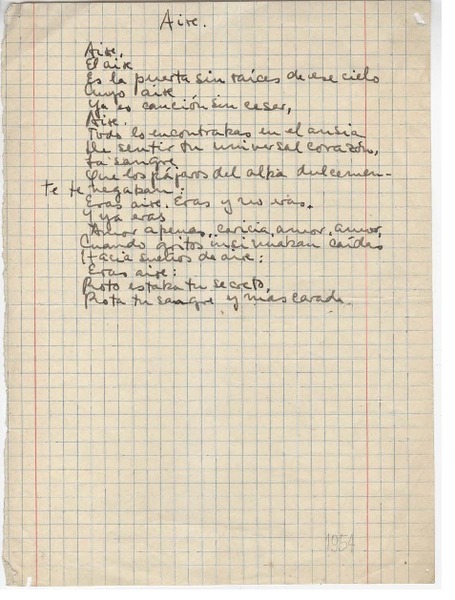 Aire.
Aire,
El aire
Es la puerta sin raíces de ese cielo
Cuyo aire
Ya es canción sin cesar,
Aire.
Todo lo encontrabas en el ansia
De sentir tu universal corazón,
Tu sangre,
Que los pájaros del alba dulcemen-
te te negaban:
Eras aire. Eras y no eras.
Y ya eras
Amor apenas, caricia, amor, amor,
Cuando gritos insinuaban caídas
Hacia sueños de aire:
Eras aire:
Roto estaba tu secreto,
Rota tu sangre y mascarada.
1954